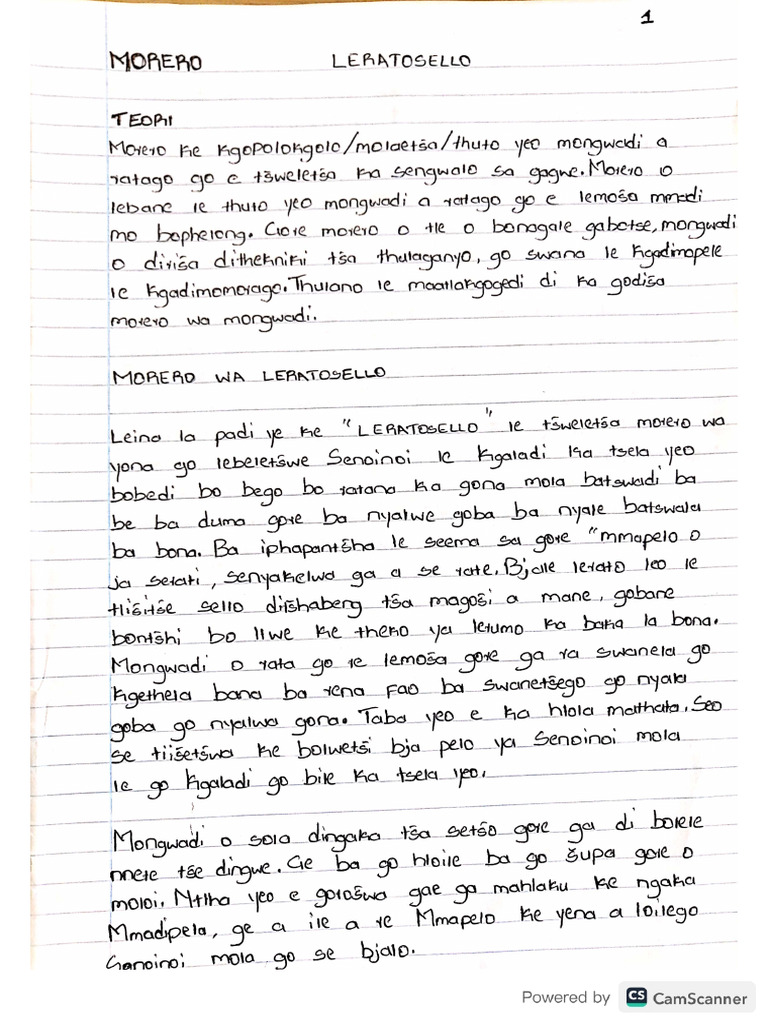 1
MORERO LERATOSELLO
TEORI
Morero ke kgopolokgolo/molaetša/thuto yeo mongwadi a
ratago go e tšweletša ka sengwalo sa gagwe. Morero o
lebane le thuto yeo mongwadi a ratago go e lemoša mmadi
mo bophelong. Gore morero o tle o bonagale gabotse, mongwadi
o diriša dithekniki tša thulaganyo, go swana le kgadimapele
le kgadimomorago. Thulano le maatlakgogedi di ka godiša
morero wa mongwadi.
MORERO WA LERATOSELLO
Leina la padi ye ke "LERATOSELLO" le tšweletša morero wa
yona go lebeletšwe Senoinoi le Kgaladi ka tsela yeo
bobedi bo bego bo ratana ka gona mola batswadi ba
be ba duma gore ba nyalwe goba ba nyale batswala
ba bona. Ba iphapantšha le seema sa gore "mmapelo o
ja serati, senyakelwa ga a se rate. Bjalle lerato leo le
tlišitše sello ditšhabeng tša magoši a mane, gobane
bontšhi bo llwe ke theko ya lerumo ka baka la bona.
Mongwadi o rata go re lemoša gore ga ra swanela go
kgethela bana ba rena fao ba swanetšego go nyala
goba go nyalwa gona. Taba yeo e ka hlola mathata. Seo
se tiišetšwa ke bolwetši bja pelo ya Senoinoi mola
le go Kgaladi go bile ka tsela yeo.
Mongwadi o sola dingaka tša setšo gore ga di bolele
nnete tše dingwe. Ge ba go hloile ba go šupa gore o
moloi. Ntlha yeo e gorošwa gae ga mahlaku ke ngaka
Mmadipela, ge a ile a re Mmapelo ke yena a loilego
Sanoinoi mola go se bjalo.
Powered by CS CamScanner